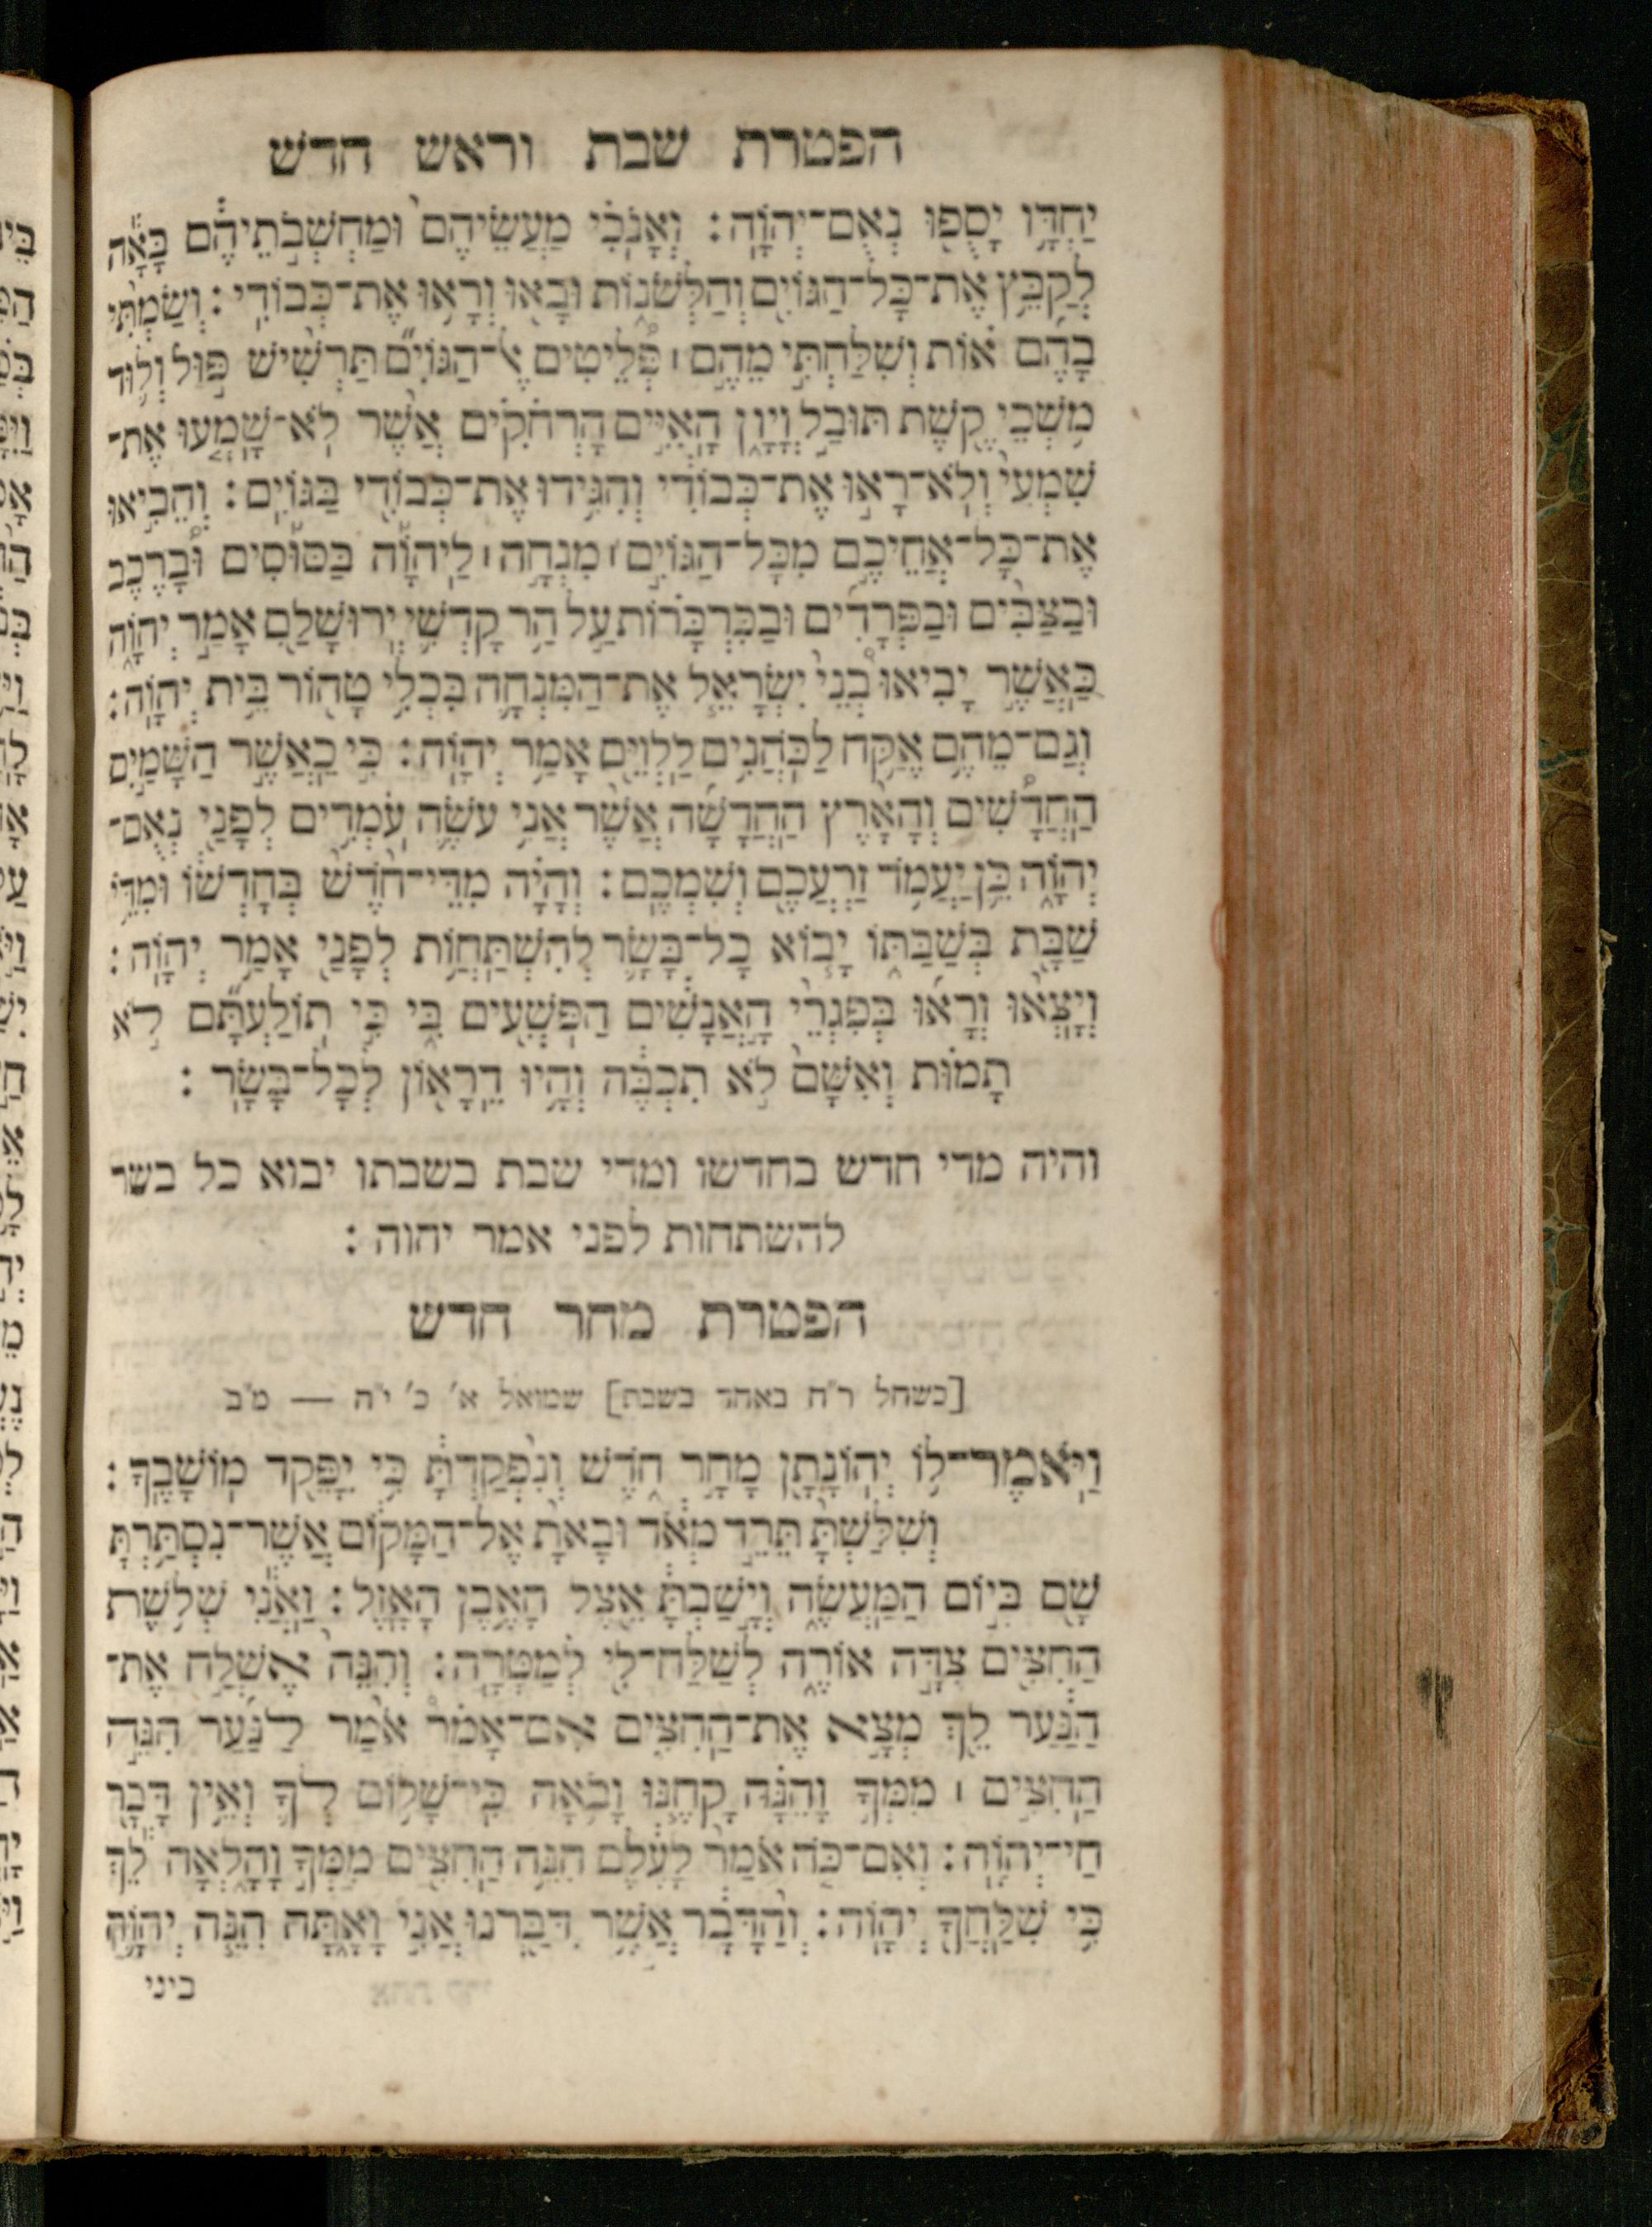 הפטרת שבת וראש חדש
יַחְדָּ֥ו יָסֻ֖פוּ נְאֻם־יְהוָֽה׃ וְאָנֹכִ֗י מַעֲשֵׂיהֶם֙ וּמַחְשְׁבֹ֣תֵיהֶ֔ם בָּאָ֕ה
לְקַבֵּ֥ץ אֶת־כָּל־הַגּוֹיִ֖ם וְהַלְּשֹׁנ֑וֹת וּבָ֖אוּ וְרָא֥וּ אֶת־כְּבוֹדִֽי׃ וְשַׂמְתִּ֨י
בָהֶ֜ם א֗וֹת וְשִׁלַּחְתִּ֣י מֵהֶ֣ם ׀ פְּ֠לֵיטִים אֶֽל־הַגּוֹיִ֞ם תַּרְשִׁ֨ישׁ פּ֥וּל וְל֛וּד
מֹ֥שְׁכֵי קֶ֖שֶׁת תּוּבַ֣ל וְיָוָ֑ן הָאִיִּ֣ים הָרְחֹקִ֗ים אֲשֶׁ֨ר לֹא־שָׁמְע֤וּ אֶת־
שִׁמְעִי֙ וְלֹֽא־רָא֣וּ אֶת־כְּבוֹדִ֔י וְהִגִּ֥ידוּ אֶת־כְּבוֹדִ֖י בַּגּוֹיִֽם׃ וְהֵבִ֣יאוּ
אֶת־כָּל־אֲחֵיכֶ֣ם מִכָּל־הַגּוֹיִ֣ם ׀ מִנְחָ֣ה ׀ לַֽיהוָ֡ה בַּסּוּסִ֡ים וּ֠בָרֶכֶב
וּבַצַּבִּ֨ים וּבַפְּרָדִ֜ים וּבַכִּרְכָּר֗וֹת עַ֣ל הַ֥ר קָדְשִׁ֛י יְרוּשָׁלִַ֖ם אָמַ֣ר יְהוָ֑ה
כַּאֲשֶׁ֣ר יָבִיאוּ֩ בְנֵ֨י יִשְׂרָאֵ֧ל אֶת־הַמִּנְחָ֛ה בִּכְלִ֥י טָה֖וֹר בֵּ֥ית יְהוָֽה׃
וְגַם־מֵהֶ֥ם אֶקַּ֛ח לַכֹּהֲנִ֥ים לַלְוִיִּ֖ם אָמַ֥ר יְהוָֽה׃ כִּ֣י כַאֲשֶׁ֣ר הַשָּׁמַ֣יִם
הַ֠חֲדָשִׁים וְהָאָ֨רֶץ הַחֲדָשָׁ֜ה אֲשֶׁ֨ר אֲנִ֥י עֹשֶׂ֛ה עֹמְדִ֥ים לְפָנַ֖י נְאֻם־
יְהוָ֑ה כֵּ֛ן יַעֲמֹ֥ד זַרְעֲכֶ֖ם וְשִׁמְכֶֽם׃ וְהָיָ֗ה מִֽדֵּי־חֹ֨דֶשׁ֙ בְּחָדְשׁ֔וֹ וּמִדֵּ֥י
שַׁבָּ֖ת בְּשַׁבַּתּ֑וֹ יָב֧וֹא כָל־בָּשָׂ֛ר לְהִשְׁתַּחֲוֺ֥ת לְפָנַ֖י אָמַ֥ר יְהוָֽה׃
וְיָצְא֣וּ וְרָא֔וּ בְּפִגְרֵי֙ הָאֲנָשִׁ֔ים הַפֹּשְׁעִ֖ים בִּ֑י כִּ֣י תוֹלַעְתָּ֞ם לֹ֣א
תָמ֗וּת וְאִשָּׁם֙ לֹ֣א תִכְבֶּ֔ה וְהָי֥וּ דֵרָא֖וֹן לְכָל־בָּשָֽׂר׃
והיה מדי חדש בחדשו ומדי שבת בשבתו יבוא כל בשר
להשתחות לפני אמר יהוה׃
הפטרת מחר חדש
[כשחל ר״ח באחד בשבת] שמואל א׳ כ׳ י״ח — מ״ב
וַיֹּֽאמֶר־ל֥וֹ יְהוֹנָתָ֖ן מָחָ֣ר חֹ֑דֶשׁ וְנִפְקַדְתָּ֕ כִּ֥י יִפָּקֵ֖ד מוֹשָׁבֶֽךָ׃
וְשִׁלַּשְׁתָּ֙ תֵּרֵ֣ד מְאֹ֔ד וּבָאתָ֙ אֶל־הַמָּק֔וֹם אֲשֶׁר־נִסְתַּ֥רְתָּ
שָּׁ֖ם בְּי֣וֹם הַֽמַּעֲשֶׂ֑ה וְיָ֣שַׁבְתָּ֔ אֵ֖צֶל הָאֶ֥בֶן הָאָֽזֶל׃ וַאֲנִ֕י שְׁלֹ֥שֶׁת
הַחִצִּ֖ים צִדָּ֣ה אוֹרֶ֑ה לְשַֽׁלַּֽח־לִ֖י לְמַטָּרָֽה׃ וְהִנֵּה֙ אֶשְׁלַ֣ח אֶת־
הַנַּ֔עַר לֵ֖ךְ מְצָ֣א אֶת־הַחִצִּ֑ים אִם־אָמֹר֩ אֹמַ֨ר לַנַּ֜עַר הִנֵּ֥ה
הַחִצִּ֣ים ׀ מִמְּךָ֣ וָהֵ֗נָּה קָחֶ֧נּוּ וָבֹ֛אָה כִּֽי־שָׁל֥וֹם לְךָ֛ וְאֵ֥ין דָּבָ֖ר
חַי־יְהוָֽה׃ וְאִם־כֹּ֤ה אֹמַר֙ לָעֶ֔לֶם הִנֵּ֥ה הַחִצִּ֖ים מִמְּךָ֣ וָהָ֑לְאָה לֵ֕ךְ
כִּ֥י שִֽׁלַּחֲךָ֖ יְהוָֽה׃ וְהַ֨דָּבָ֔ר אֲשֶׁ֥ר דִּבַּ֖רְנוּ אֲנִ֣י וָאָ֑תָּה הִנֵּ֧ה יְהוָ֛ה
ביני